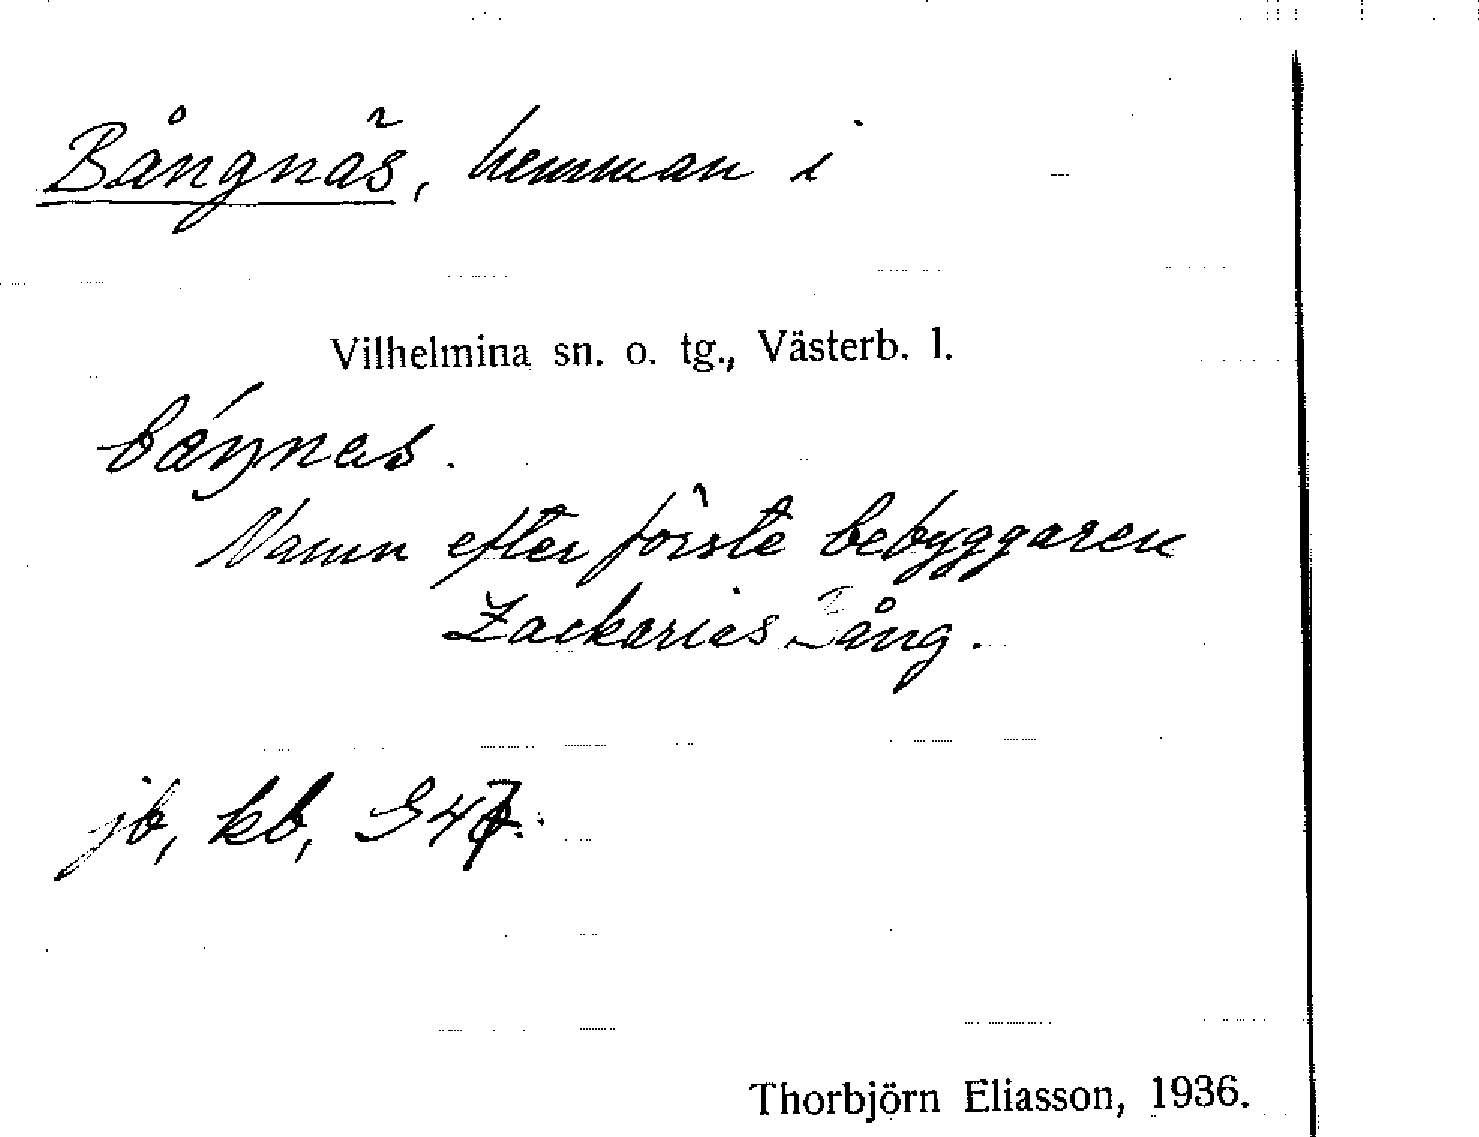 Bångnäs, hemman i
Vilhelmina sn. o. tg., Västerb. l.
Namn efter förste bebyggaren
Zackarias Bång.
jb, kb,
Thorbjörn Eliasson, 1936.